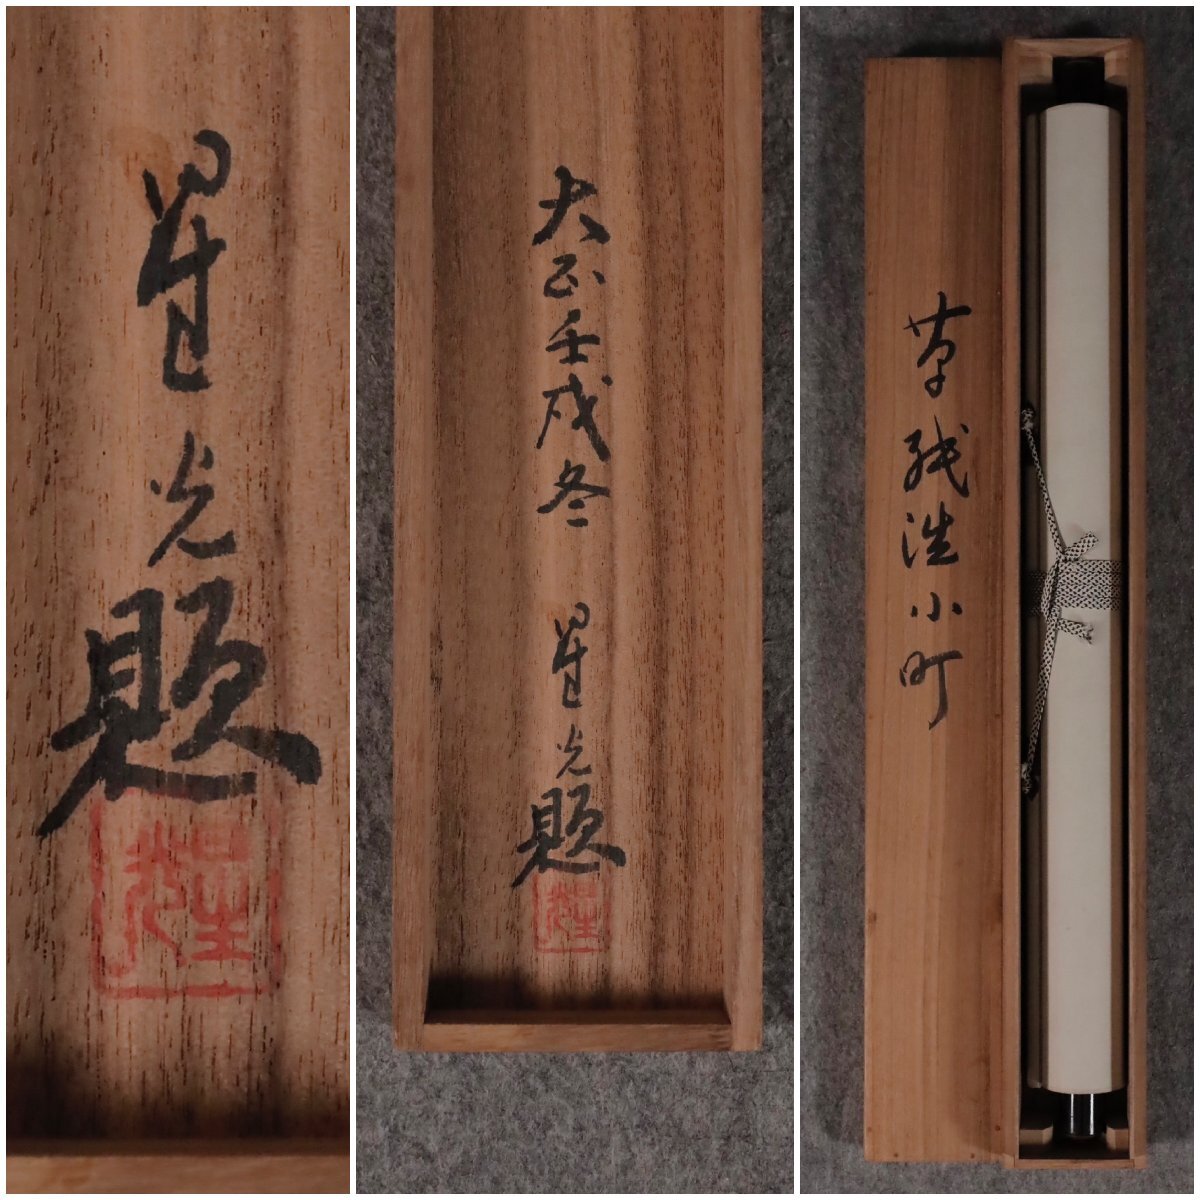 星光題
星光
大正壬戌冬 星光題
星光
草紙洗小町